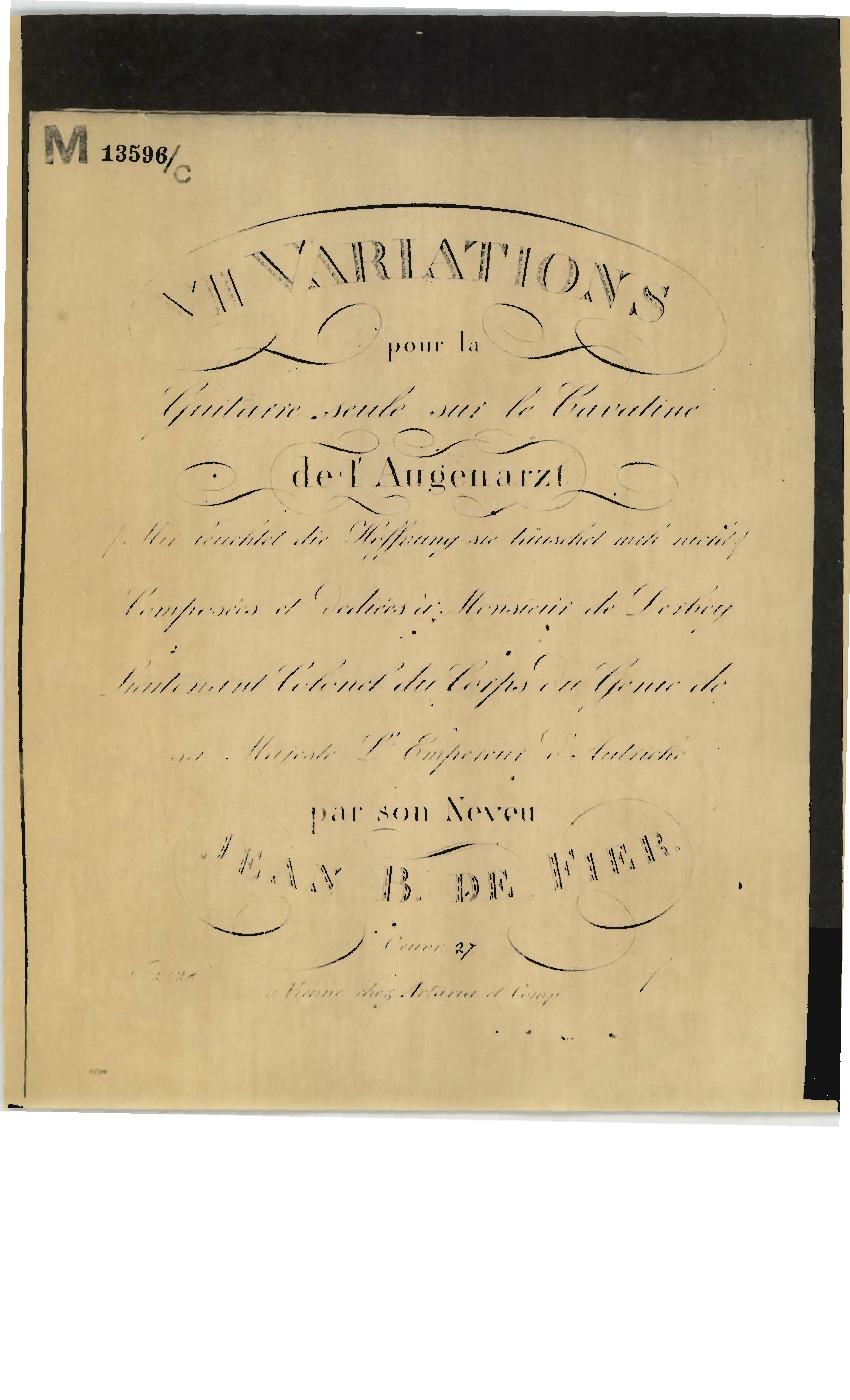 M 13596/c
VII VARIATIONS
pour la
Guitarre seule sur la Cavatine
de l'Augenarzt
(Mir leuchtet die Hoffnung sie täuschet mich nicht)
Composées et Dediées à Monsieur de
Lieutenant Colonel du Corps du Genie de
sa Majesté L'Empereur d'Autriche
par son Neveu
JEAN B. DE FIER.
Oeuvre 27
à Vienne chez Artaria et Comp